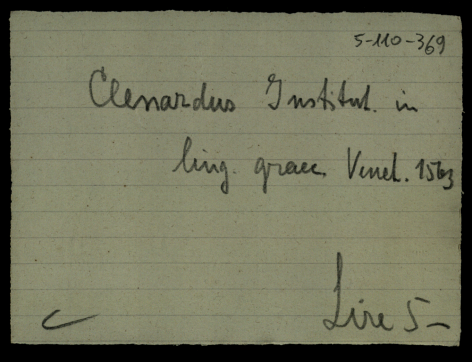 5-110-369
Clenardus Institut. in
ling. graec. Venet. 1563
Lire 5-